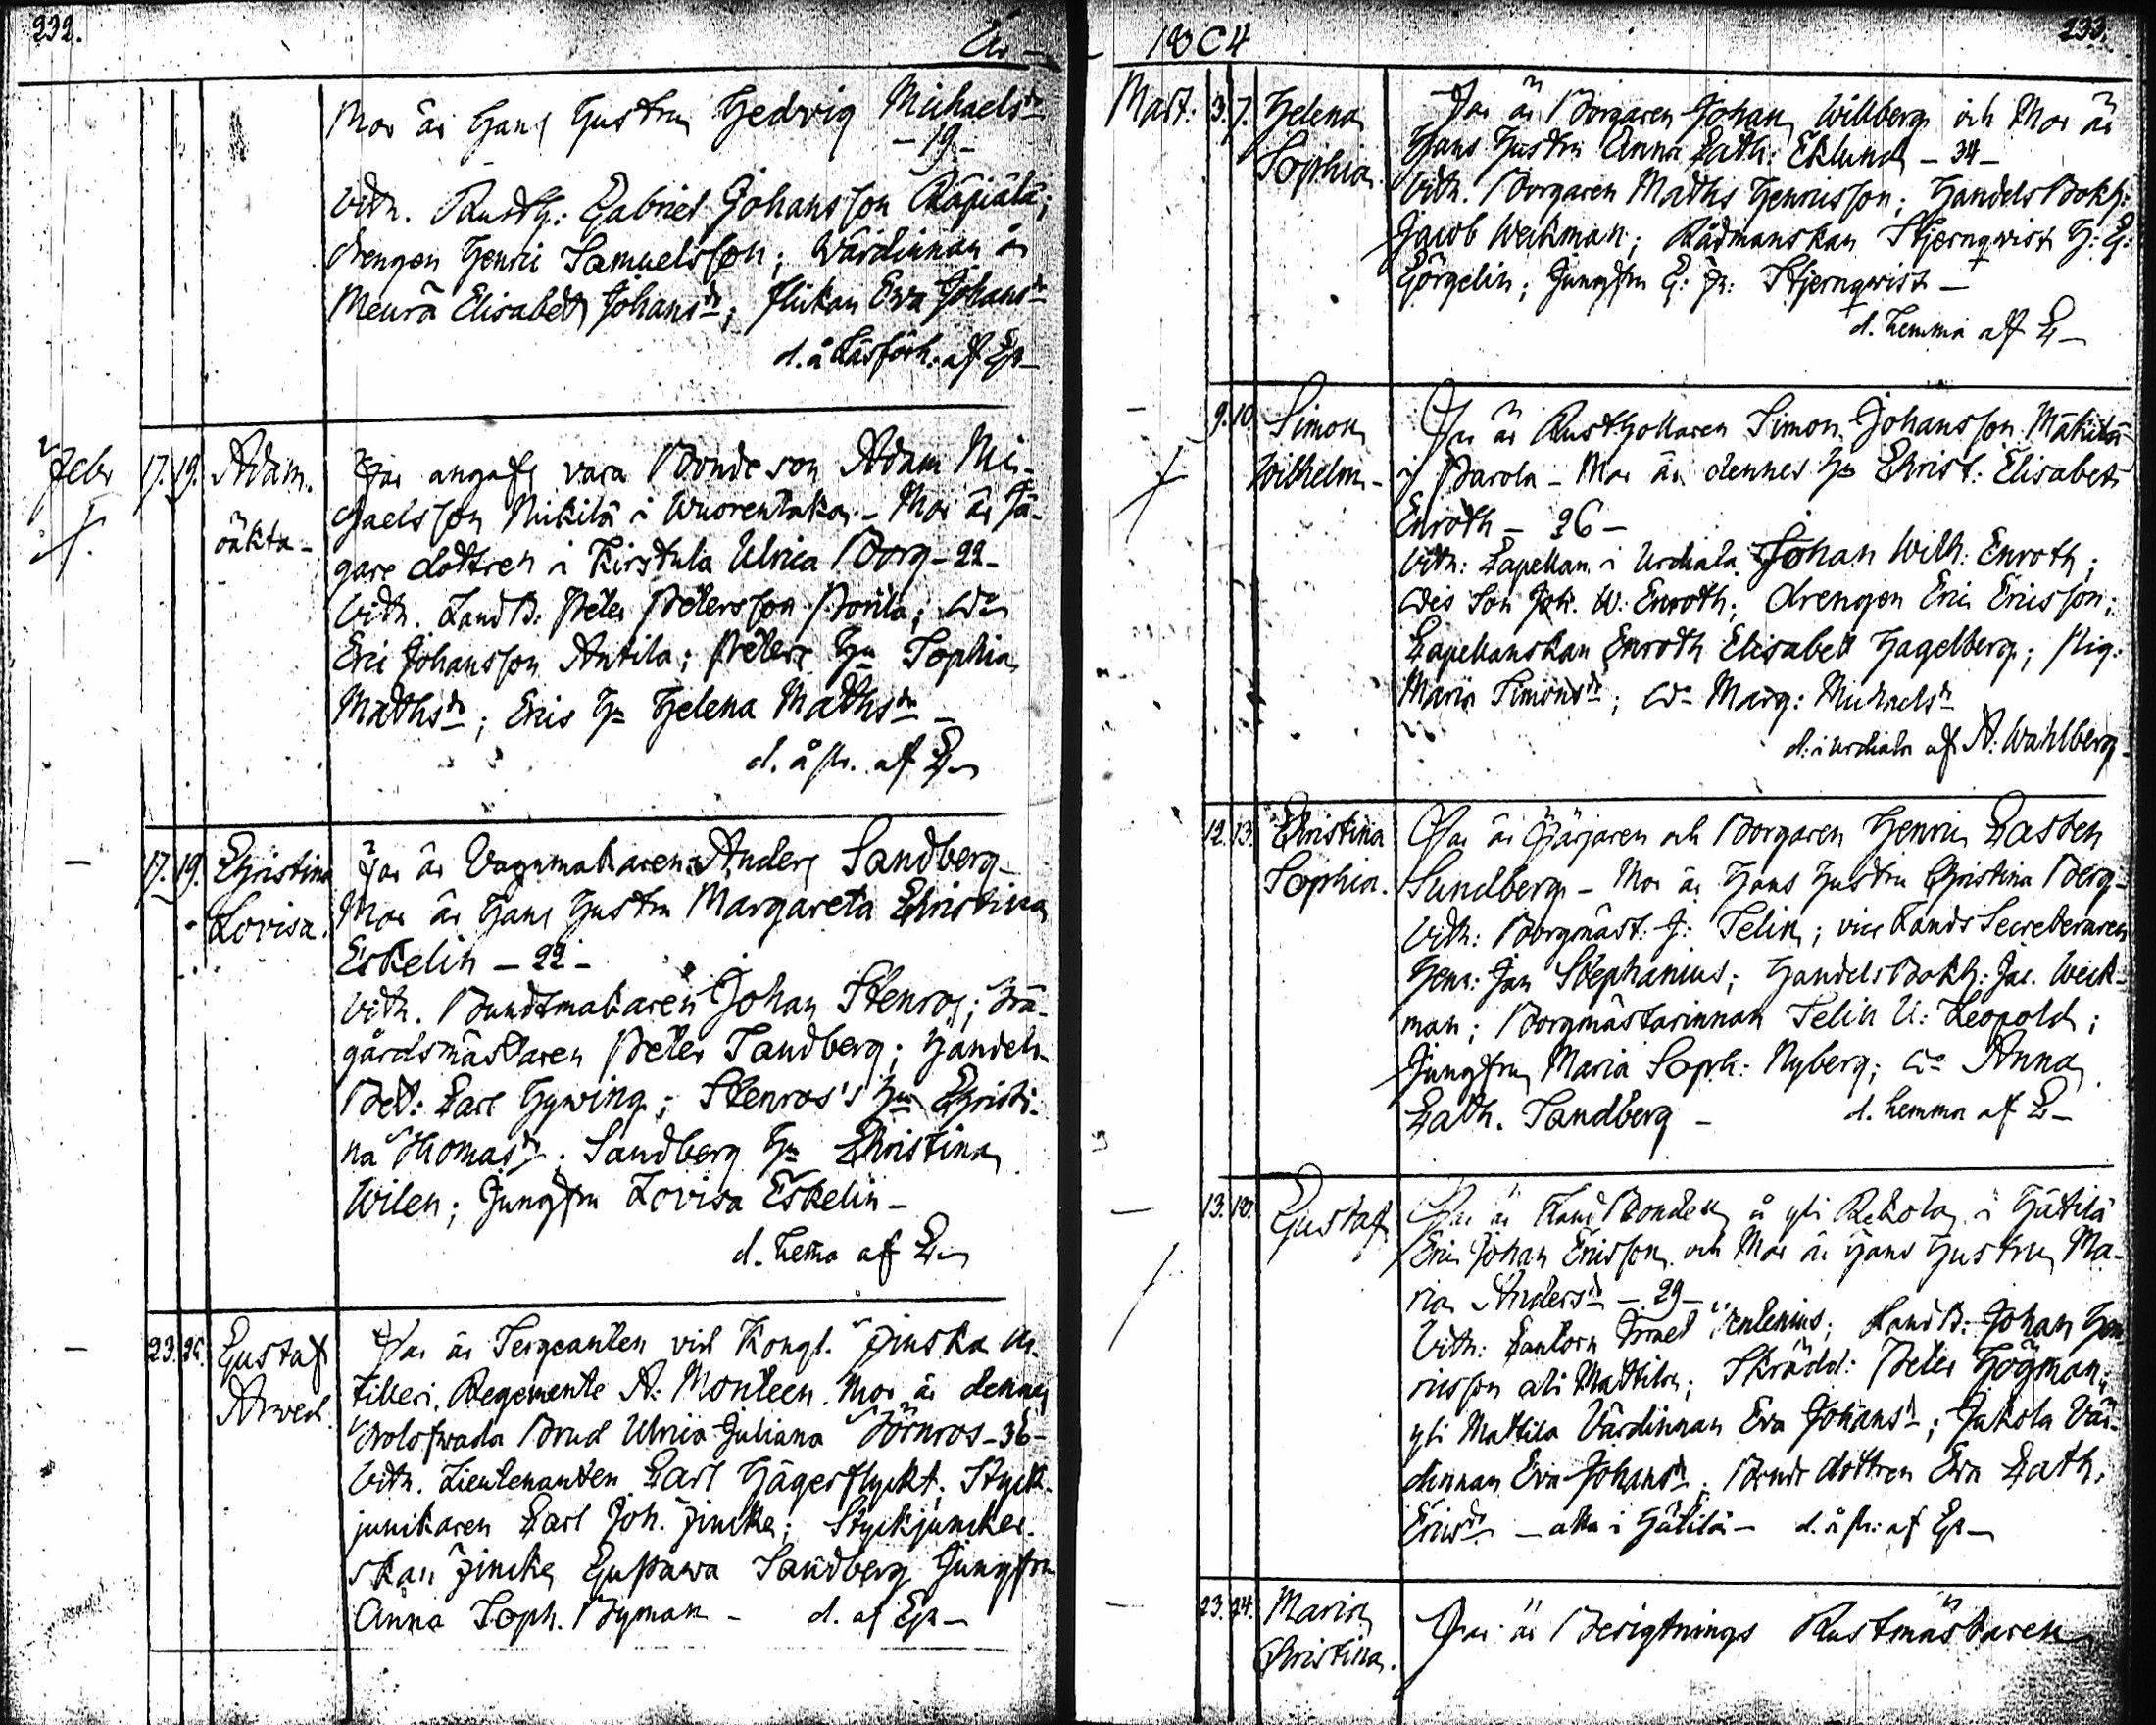 232.
År –
Mor är Hans Hustru Hedvig Michaelsdr
– 19 –
Vittn. Rusth: Gabriel Johansson Räpiälä;
drengen Henric Samuelsson; Wärdinnan å
Meurä Elisabeth Johansdr; flickan Eva Johansdr
d. å Läsförh. af Gr –
Febr
17. 19. Adam.
oäkta –
Far angafs vara Bondeson Adam Mi-
chaelsson Mikilä i Wuorentaka – Mor är Jä-
gare dottren i Kirstula Ulrica Borg – 22 –
Vittn. LandB: Peter Petersson ; do
Eric Johansson Antila; Peters Hu Sophia
Mathsdr; Erics Hu Helena Mathsdr –
d. å pr. af
17. 19. Christina
Lovisa.
Far är Vagnmakaren Anders Sandberg –
Mor är Hans Hustru Margareta Christina
Eskelin – 22 –
Vittn. Buntmakaren Johan Stenros; Trä-
gårdsmästaren Peter Sandberg; Handels
Bet: Carl Hywing; Stenros's Hu Christi-
na Thomasdr; Sandberg Hu Christina
Wilen; Jungfru Lovisa Eskelin –
d. hema af
23. 25. Gustaf
Arved.
Far är Sergeanten vid Kongl. Finska Ar-
tilleri Regemente A: Monteen. Mor är dennes
trolofwada Brud Ulrica Juliana Törnros – 36 –
Vittn. Lieutenanten Carl Hägerflyckt; Styck-
junkaren Carl Joh. Zincke; Styckjuncker-
skan Zincke Gustawa Sandberg Jungfru
Anna Soph. Byman – d. af Gr –
1804
233.
Mart. 3. 7. Helena
Sophia.
Far är Borgaren Johan Willberg och Mor är
Hans Hustru Anna Cath: Eklund – 34 –
Vittn. Borgaren Maths Henricsson; HandelsBokh:
Jacob Weckman; Rådmanskan Stjernqwist H: G:
Görgelin; Jungfru G: Fr: Stjernqwist –
d. hemma af
9. 10. Simon
Wilhelm –
Far är Rusthollaren Simon Johansson Mäkilä
i Parola – Mor är dennes Hu Christ: Elisabet
Enroth – 26 –
Vittn: Capellan i Urdiala Johan Wilh: Enroth;
des Son Joh. W: Enroth; drengen Eric Ericsson;
Capellanskan Enroth Elisabet Hagelberg; Pig:
Maria Simonsdr; do Marg: Michaelsdr
d: i Urdiala af A: Wahlberg –
12. 13. Christina
Sophia.
Far är Färjaren och Borgaren Henric Casten
Sundberg – Mor är Hans Hustru Christina Berg –
Vittn: Borgmäst: J: Telin; vice LandsSecreteraren
Henr: Jan Stephanius; HandelsBokh: Jac. Weck-
man; Borgmästarinnan Telin U: Leopold;
Jungfru Maria Soph: Nyberg; do Anna
Cath. Sandberg – d. hemma af
13. 18. Gustaf
Far är LandBonden å yli Rekola i Hätilä
Eric Johan Ericsson och Mor är Hans Hustru Ma-
ria Andersdr – 29 –
Vittn: Cantorn Wenlenius; LandB: Johan Hen-
ricsson ali Mattila; Skrädd: Peter Högman;
yli Mattila Värdinnan Eva Johansdr; Jakola Vär-
dinnan Eva Johansdr; Bonde dottren Eva Cath.
Ericsdr – alla i Hätilä – d. å pr: af Gr –
23. 24. Maria
Christina.
Far är Besigtnings Rustmästaren